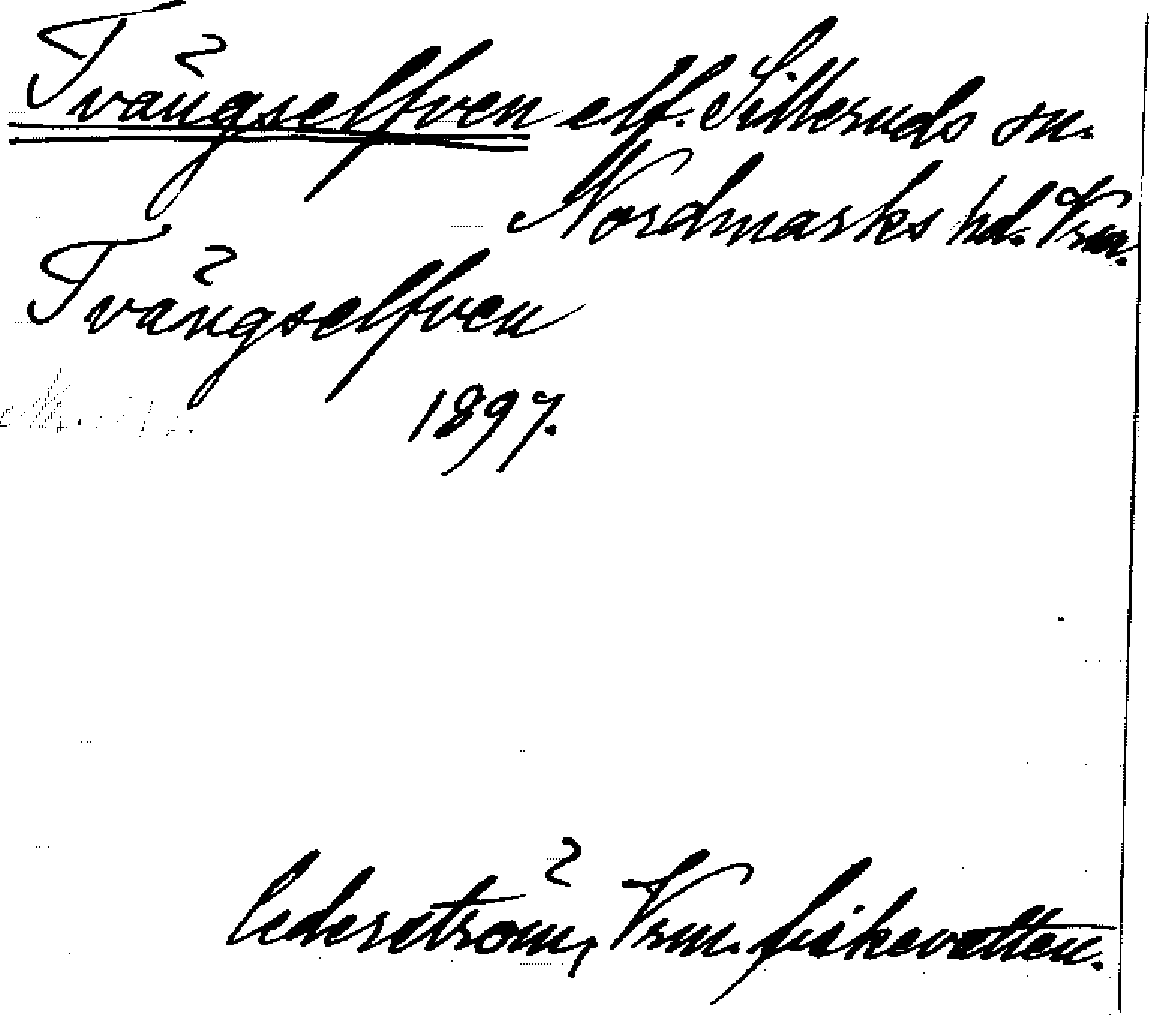 Tvängselfven elf. Silleruds sn.
Nordmarks hd. Vrm.
Tvängselfven
1897.
Cederström, Vrm. fiskevatten.